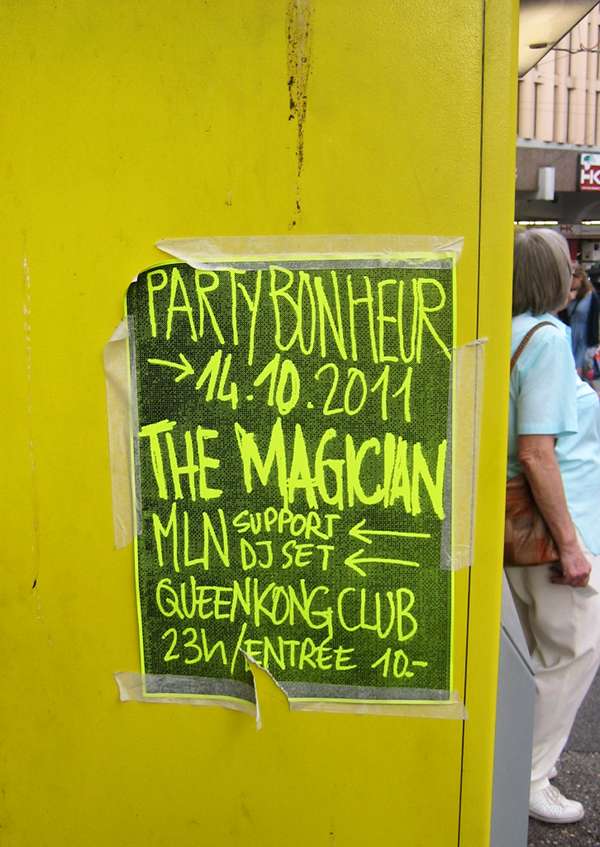 PARTY BONHEUR
→14.10.2011
THE MAGICIAN
MLN SUPPORT ←
DJ SET ←
QUEEN KONG CLUB
23h/ENTRÉE 10.-